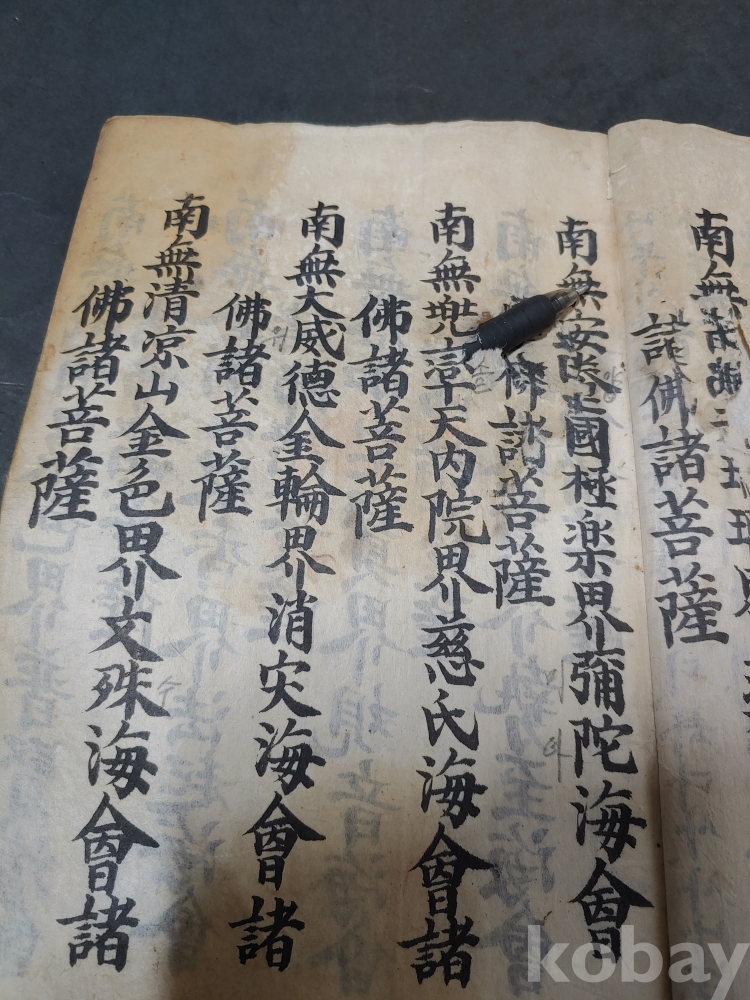 南無
諸佛諸菩薩
南無安養國極楽界彌陀海會
佛諸菩薩
南無兜率天内院界慈氏海會諸
佛諸菩薩
南無大威德金輪界消灾海會諸
佛諸菩薩
南無清凉山金色界文殊海會諸
佛諸菩薩
kobay